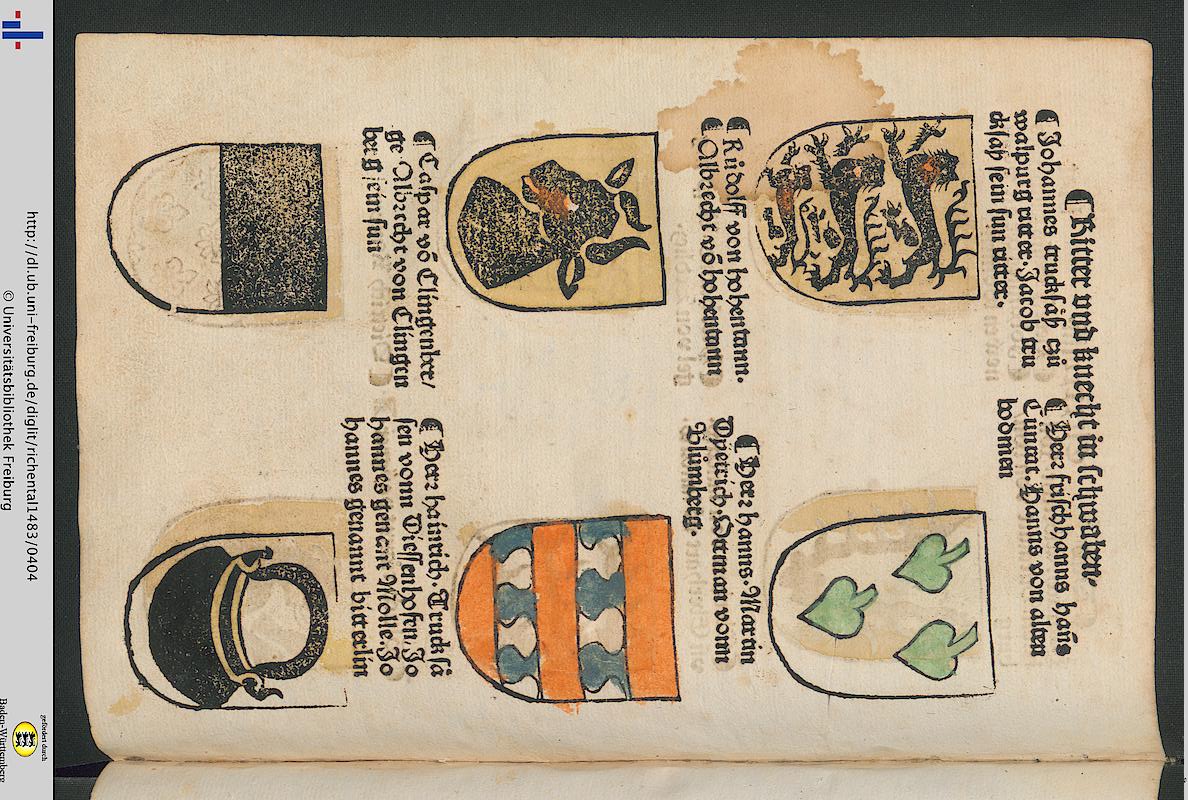 ¶ Ritter vnd knecht in schwaben.
¶ Johannes trucksäß czů
walpurg ritter. Jacob tru
cksäß sein sun ritter.
¶ Herr frischhanns hañs
Cůnrat. Hanns von alten
bodmen
¶ Růdolff von hohentann.
¶ Albrecht võ hohentann
¶ Herr hanns. Martin
Dyetrich. Otman vonn
Blůmberg.
¶ Caspar võ Clingenber/
ge Albrecht von Clingen
berg sein sun
¶ Herr hainrich. Trucksä
sen vonn Diessenhofen. Jo
hannes genant Molle. Jo
hannes genannt bitterlin
http://dl.ub.uni-freiburg.de/diglit/richental1483/0404
© Universitätsbibliothek Freiburg
gefördert durch
Baden-Württemberg